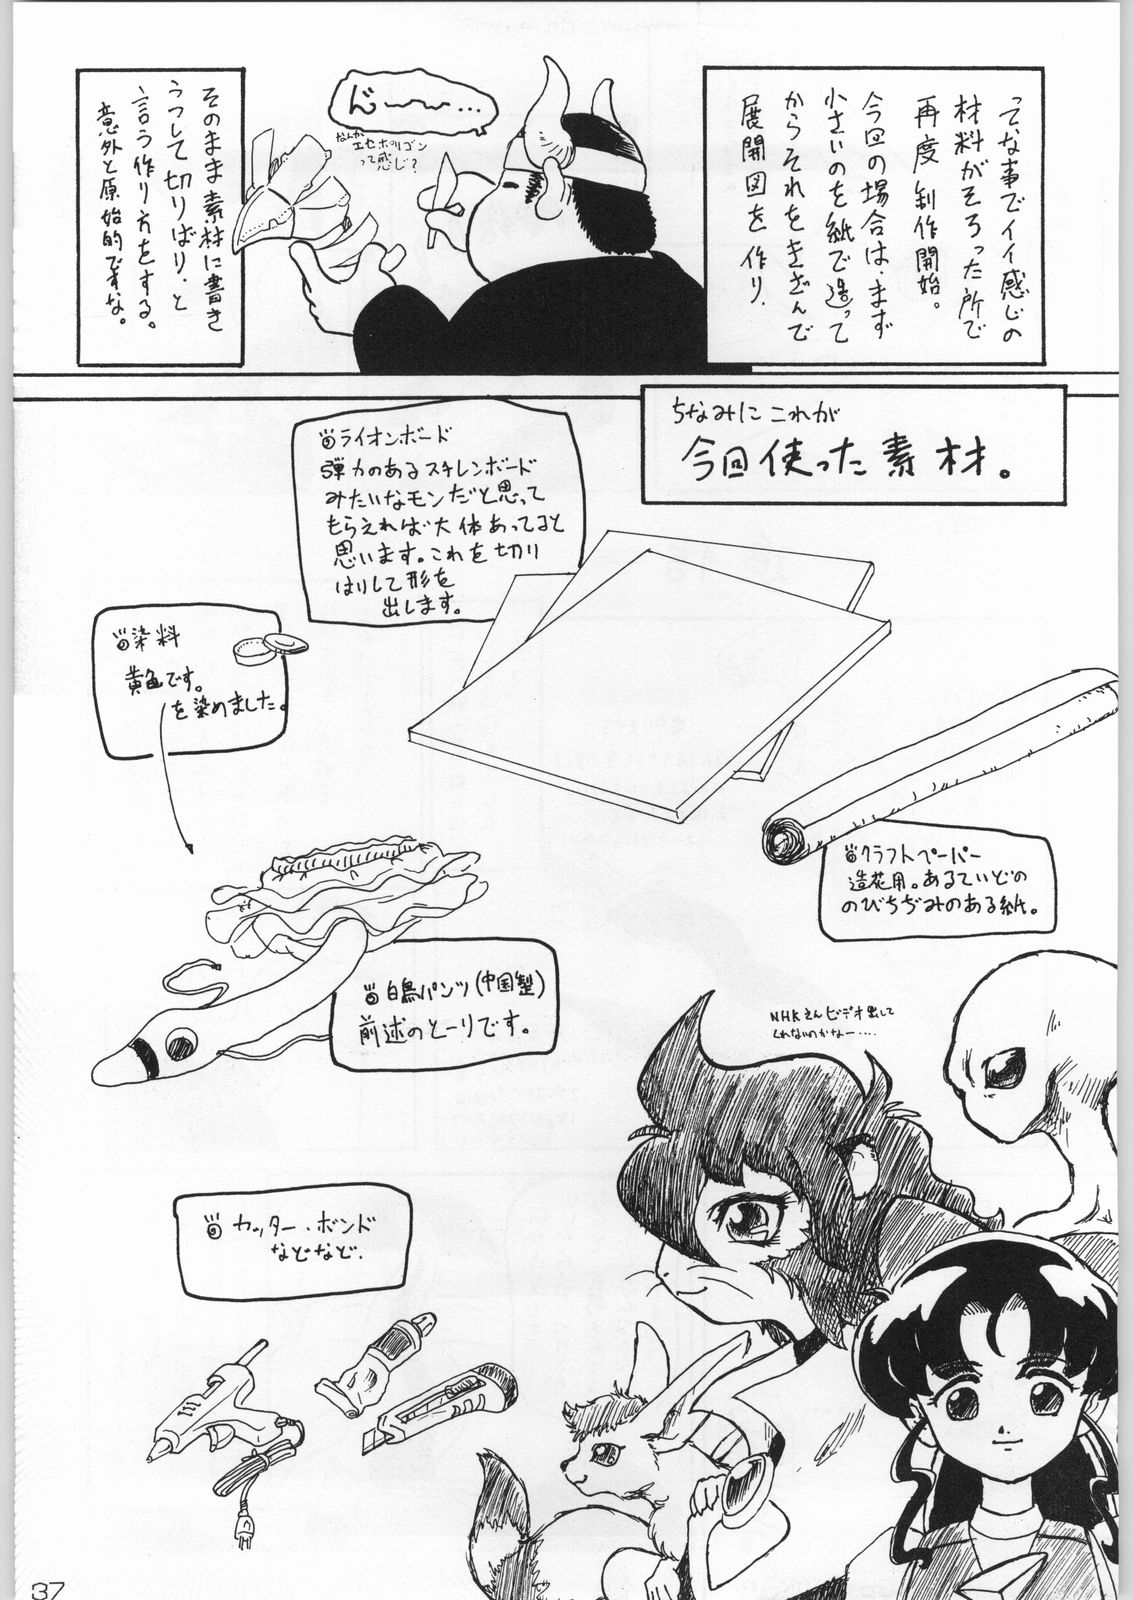 ってな事でイイ感じの
材料がそろった所で
再度制作開始。
今回の場合は、まず
小さいのを紙で造って
からそれをきざんで
展開図を作り、
ド〜〜〜…
なんか
エセポリゴン
って感じ?
そのまま素材に書き
うつして切りばり、と
言う作り方をする。
意外と原始的ですな。
ちなみにこれが
今回使った素材。
ライオンボード
弾力のあるスチレンボード
みたいなモンだと思って
もらえれば大体あってると
思います。これを切り
はりして形を
出します。
染料
黄色です。
を染めました。
クラフトペーパー
造花用。あるていどの
のびちぢみのある紙。
白鳥パンツ(中国製)
前述のとーりです。
NHKさんビデオ出して
くれないのかなー・・・・
カッター、ボンド
などなど.
37